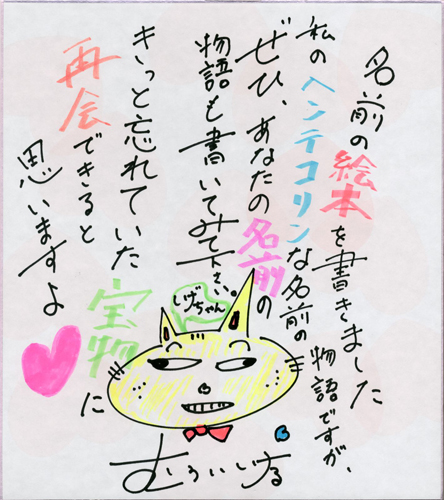 名前の絵本を書きました
私のヘンテコリンな名前の物語ですが、
ぜひ、あなたの名前の
物語も書いてみて下さい。
きっと忘れていた宝物に
再会できると
思いますよ
しげちゃん
むろいしげる